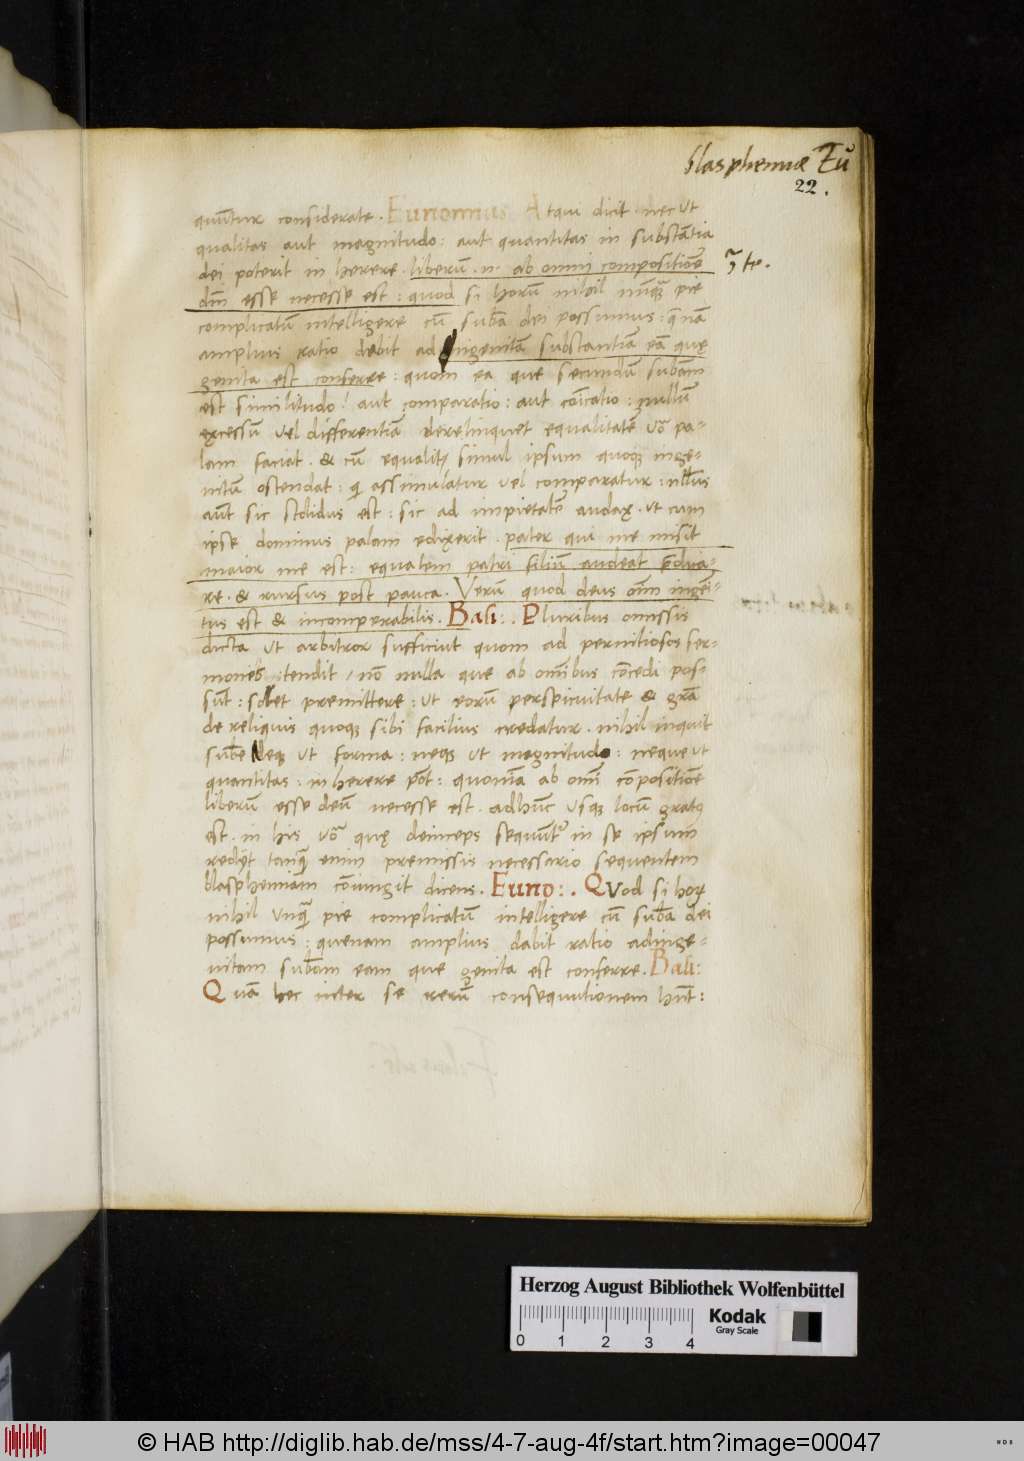 blasphemiæ Eu᷑
22.
quūtur considerate. Eunomius Atqui dicit nec ut
qualitas aut magnitudo: aut quantitas in substātia
dei poterit in herere. liberū .n. ab omni compositiōe
dm̄ esse necesse est: quod si horū nihil pie
complicatū intelligere cū sub̄a dei possumus: nā
amplius ratio dabit ad ingenitā substantiā eā quę
genita est conferre: quom ea que secundū sub̄am
est similitudo! aut comparatio: aut cōicatio: nullū
excessū vel differentiā derelinquet equalitatē vo᷑ pa-
lam faciat. & cū simul ipsum quoqꝫ inge-
nitū ostendat: assimulatur vel comparatur: nullus
aūt sic stolidus est: sic ad impietatē audax. ut cum
ipse dominus palam edixerit. pater qui me misit
maior me est: equalem patri filiū audeat
re. & rursus post pauca. Verū quod deus om̄i ingēi-
tus est & incomperabilis. Bali:. Pluribus omissis
dicta ut arbitror sufficiut quom ad pernitiosos ser-
mones .itendit / nō nulla que ab om̄ibus cōcedi pos-
sūt: solet premittere: ut eorū perspicuitate & grā
de reliquis quoqꝫ sibi facilius credatur. nihil inquit
sub̄e Neqꝫ ut forma: neqꝫ ut magnitudo: neque ut
quantitas. in herere pōt: quoniā ab om̄i cōpositiōe
liberū esse deū necesse est. adhūc usqꝫ locū gratꝰ
est. in his vo᷑ quę deinceps sequūt᷑ in se ipsum
redijt tanꝗ̄ enim premissis necessario sequentem
blasphemiam cōiungit dicens. Euno:. Quod si hoꝝ
nihil unꝗ̄ pie complicatū intelligere cū sub̄a dei
possumus: quenam amplius dabit ratio adinge-
nitam sub̄am eam que genita est conferre. Bali:
Quā hec inter se rerū consequutionem hn̄t:
Herzog August Bibliothek Wolfenbüttel
0 1 2 3 4
Kodak
Gray Scale
© HAB http://diglib.hab.de/mss/4-7-aug-4f/start.htm?image=00047